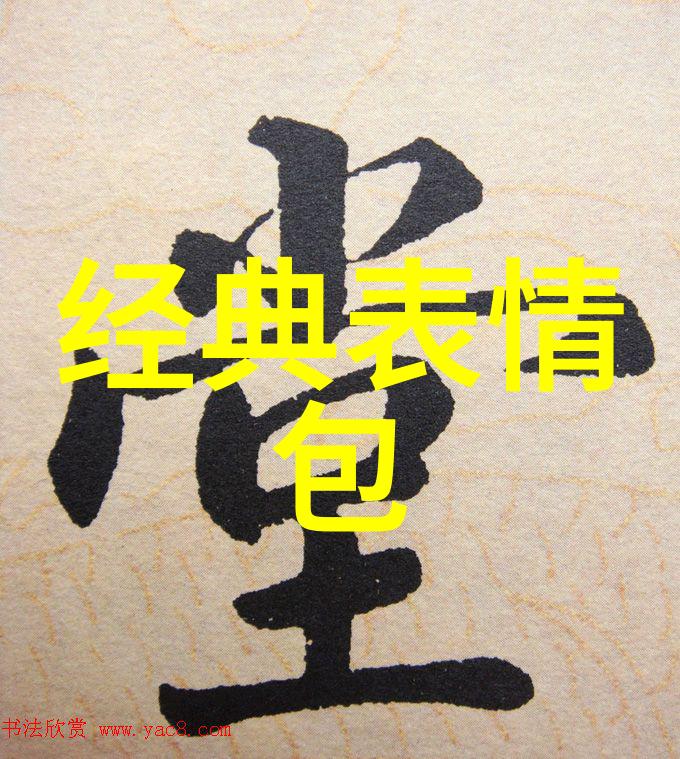 堂
经典表情
包
书法欣赏 www.yac8.com